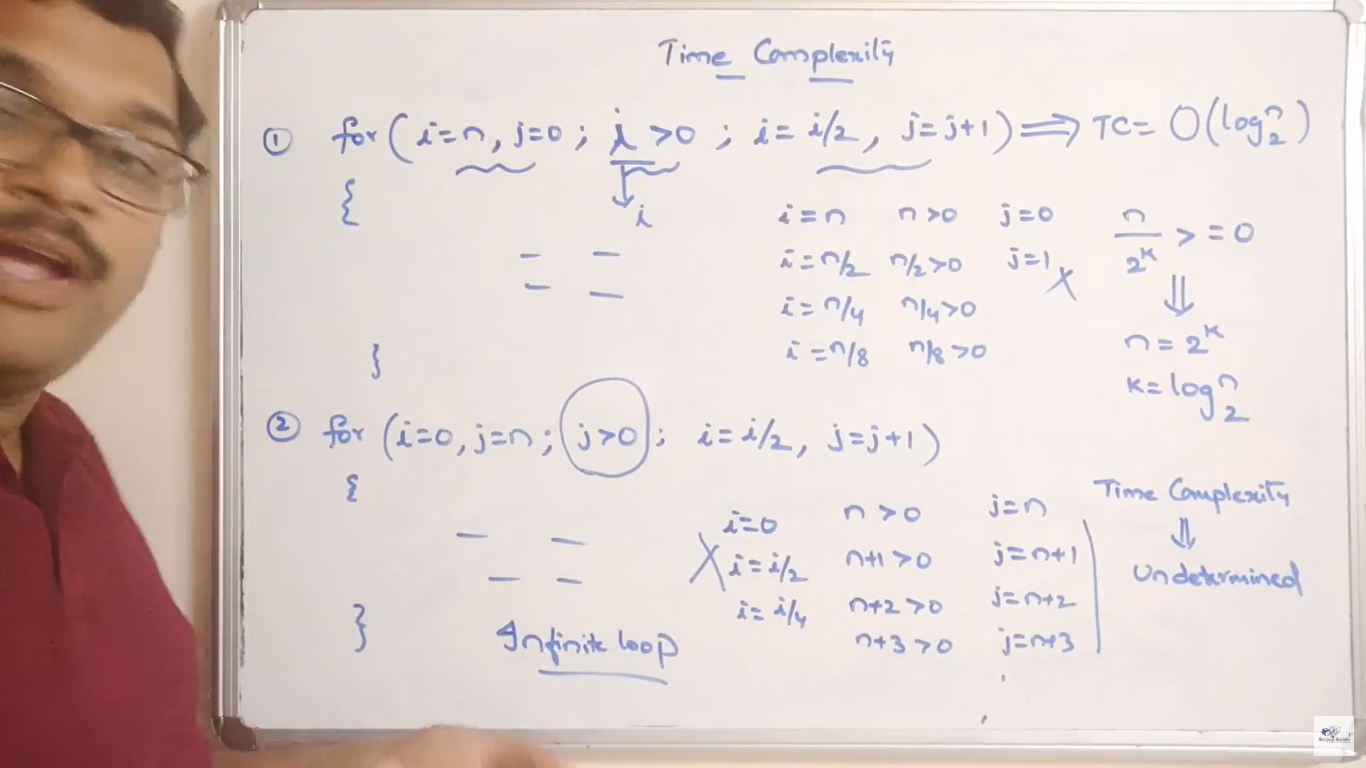 Time Complexity
① for ( i=n, j=0 ; i >0 ; i = i/2, j=j+1) ⟹ TC= O(log₂n)
{
i
i = n n>0 j=0
i = n/2 n/2 >0 j=1
i = n/4 n/4 >0
i = n/8 n/8 >0
}
n/2ᵏ > = 0
⇓
n = 2ᵏ
k = log₂n
② for (i=0, j=n ; j>0 ; i = i/2, j=j+1)
{
i=0 n > 0 j=n
i = i/2 n+1 >0 j=n+1
i = i/4 n+2 >0 j=n+2
n+3 >0 j=n+3
}
Infinite loop
Time Complexity
⇓
Undetermined